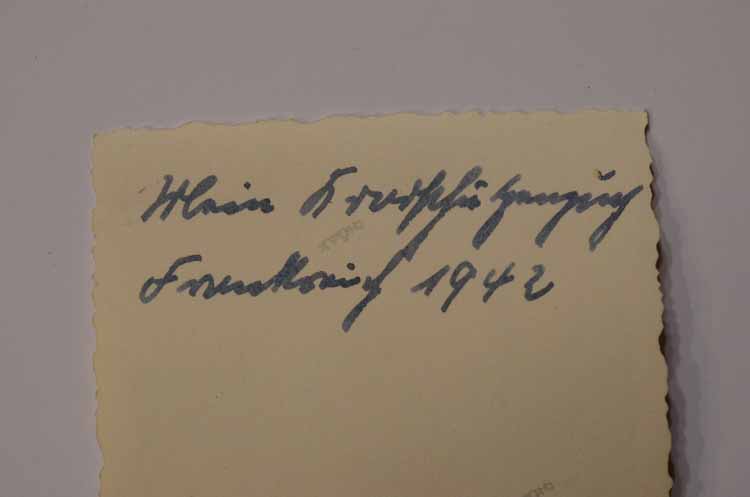 Mein Kradschützenzug
Frankreich 1942